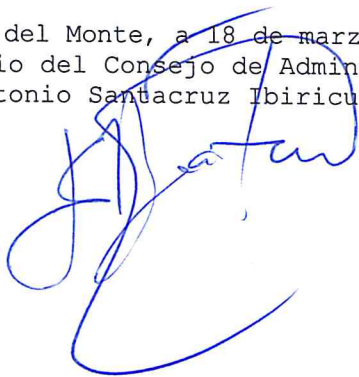 del Monte, a 18 de marz
io del Consejo de Admin
tonio Santacruz Ibiricu